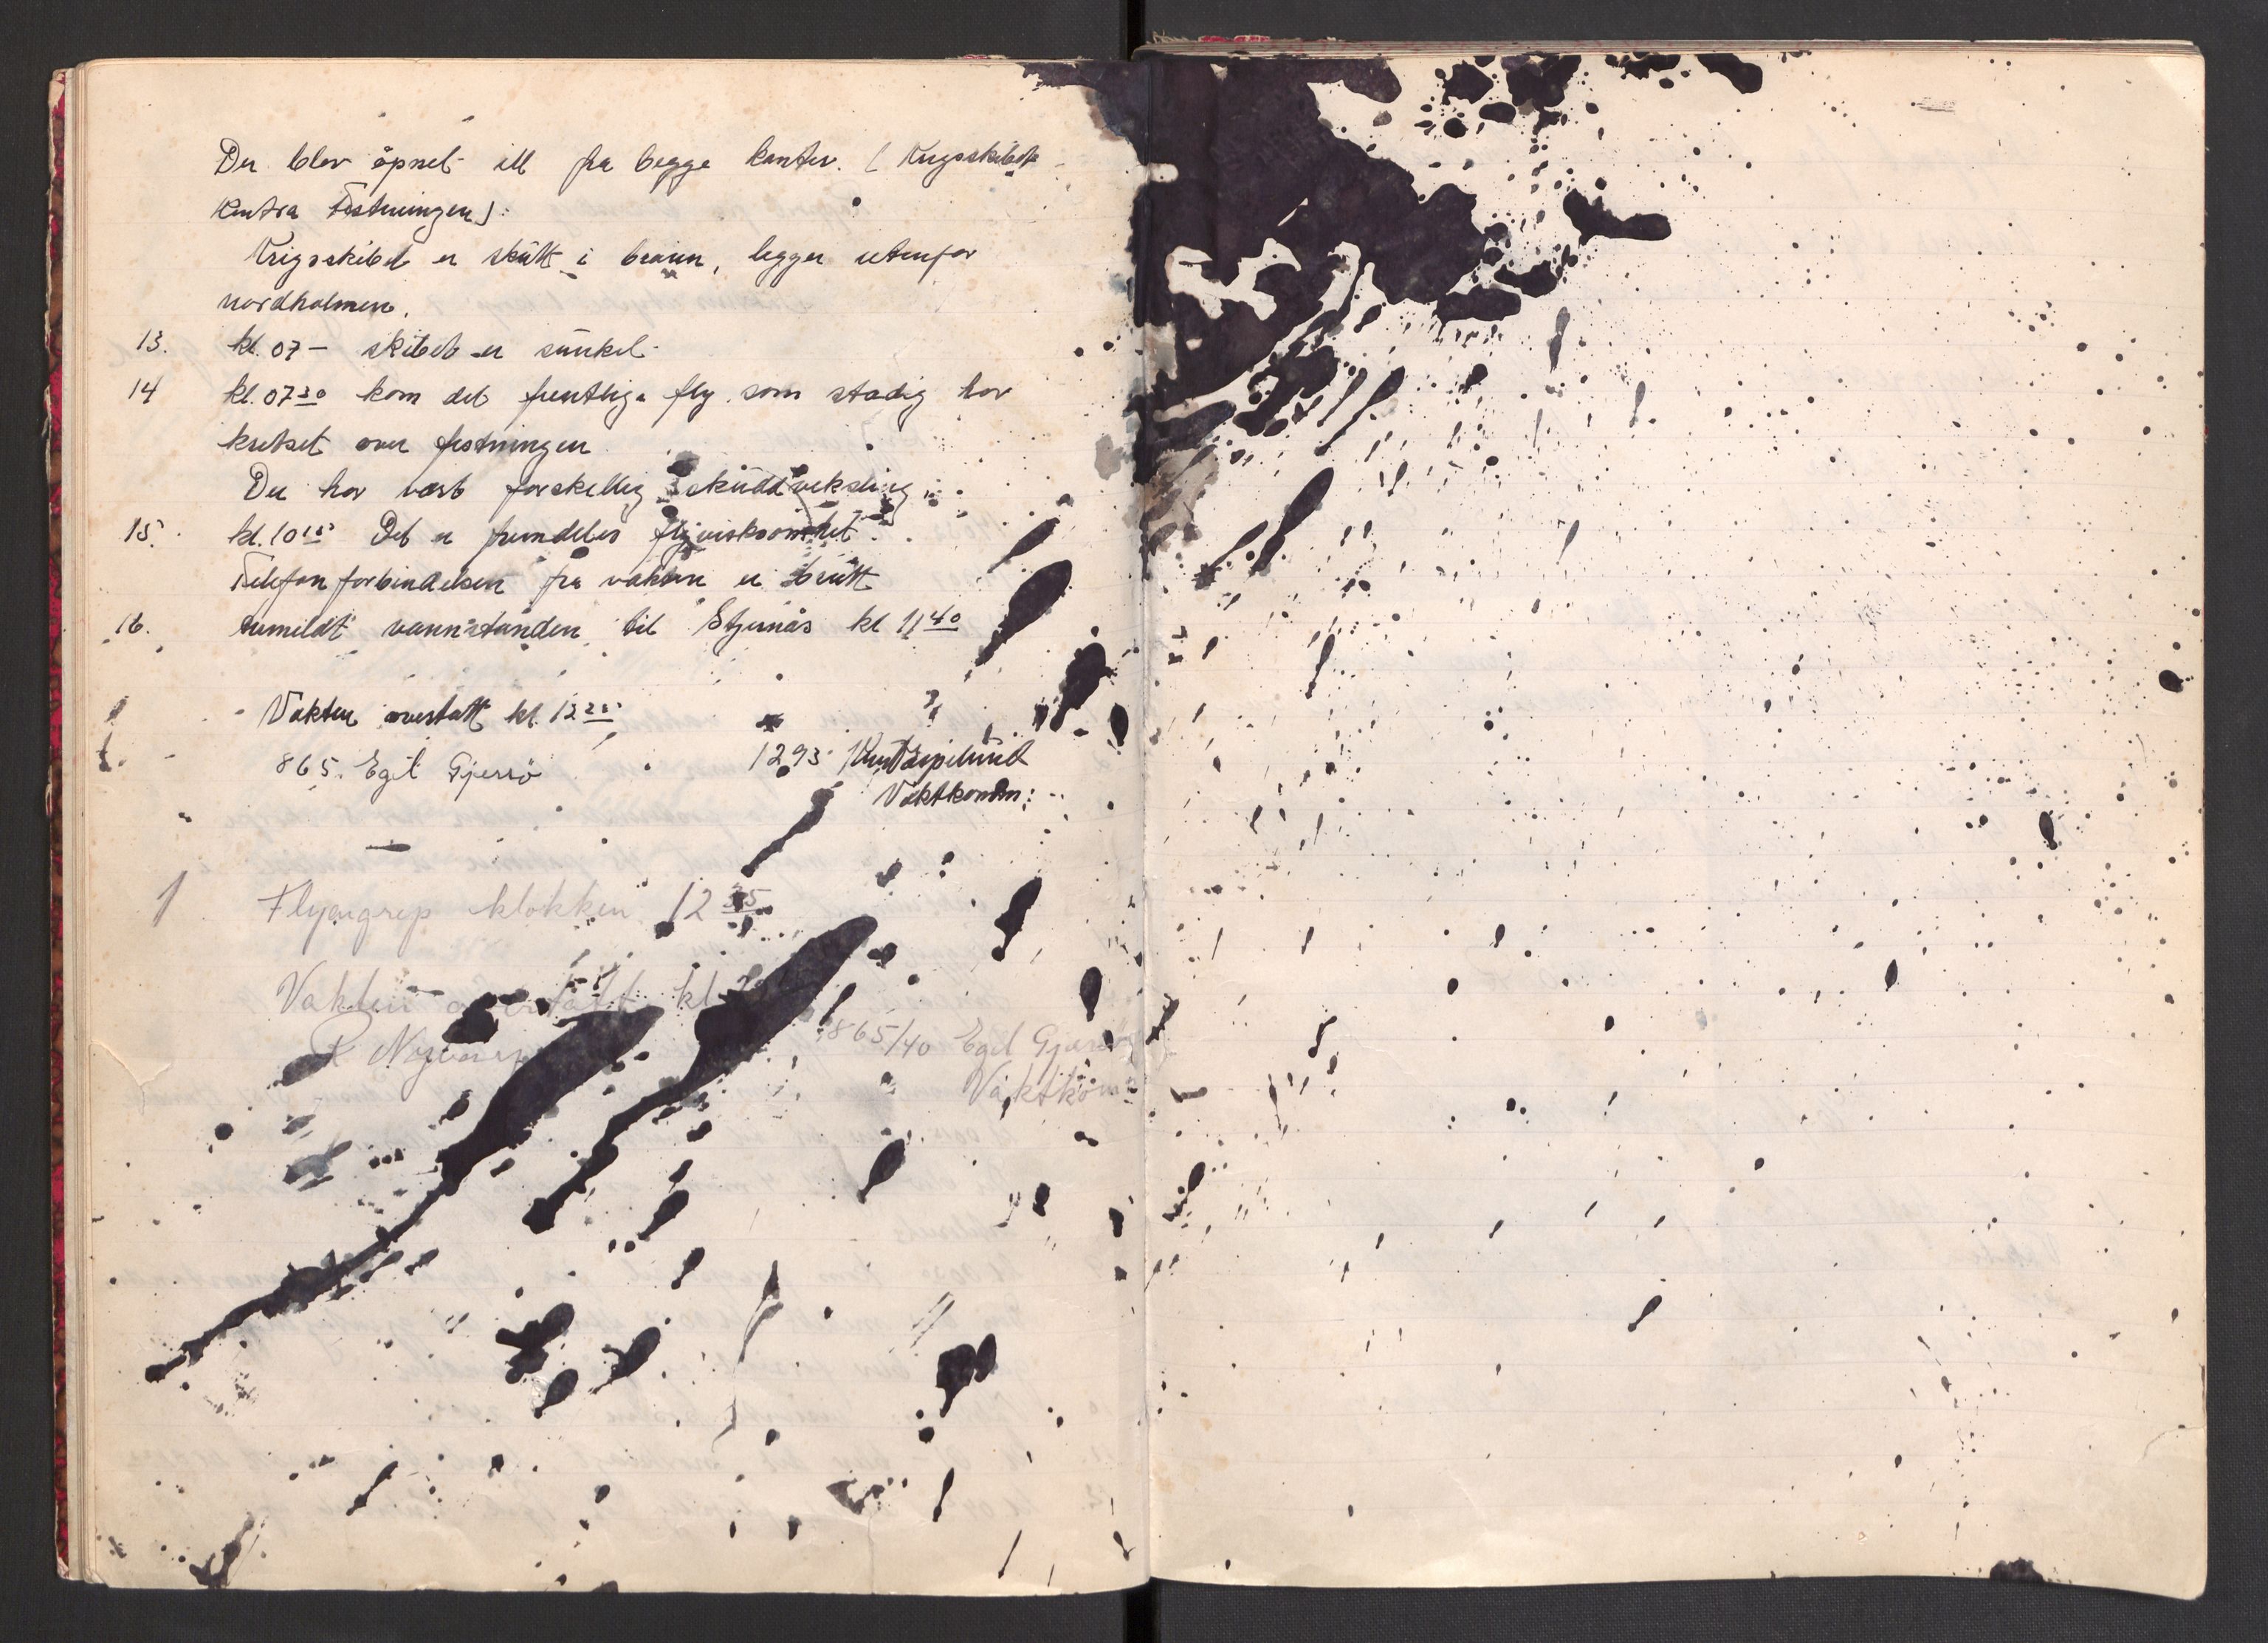 Der blev åpnet ild fra begge kanter. ( Krigsskibet
kontra Festningen).
Krigsskibet er skutt i brann, legger utenfor
nordholmen.
13. kl. 07 – skibet er sunket.
14 kl. 07 30 kom det fientlige fly som stadig har
kretset over festningen
Der har vært forskellig skuddveksling
15. kl. 10 15 Det er fremdeles flyvirksomhet.
Telefonforbindelsen fra vakten er brutt
16. vannstanden til Stjernås kl 11 40
Vakten overtatt kl. 12 25
865. Egil Gjersö 1293
Vaktkomm:
1 Flyangrep klokken 12 35
Vakten overtatt kl
R 865/40 Egil
Vaktkom